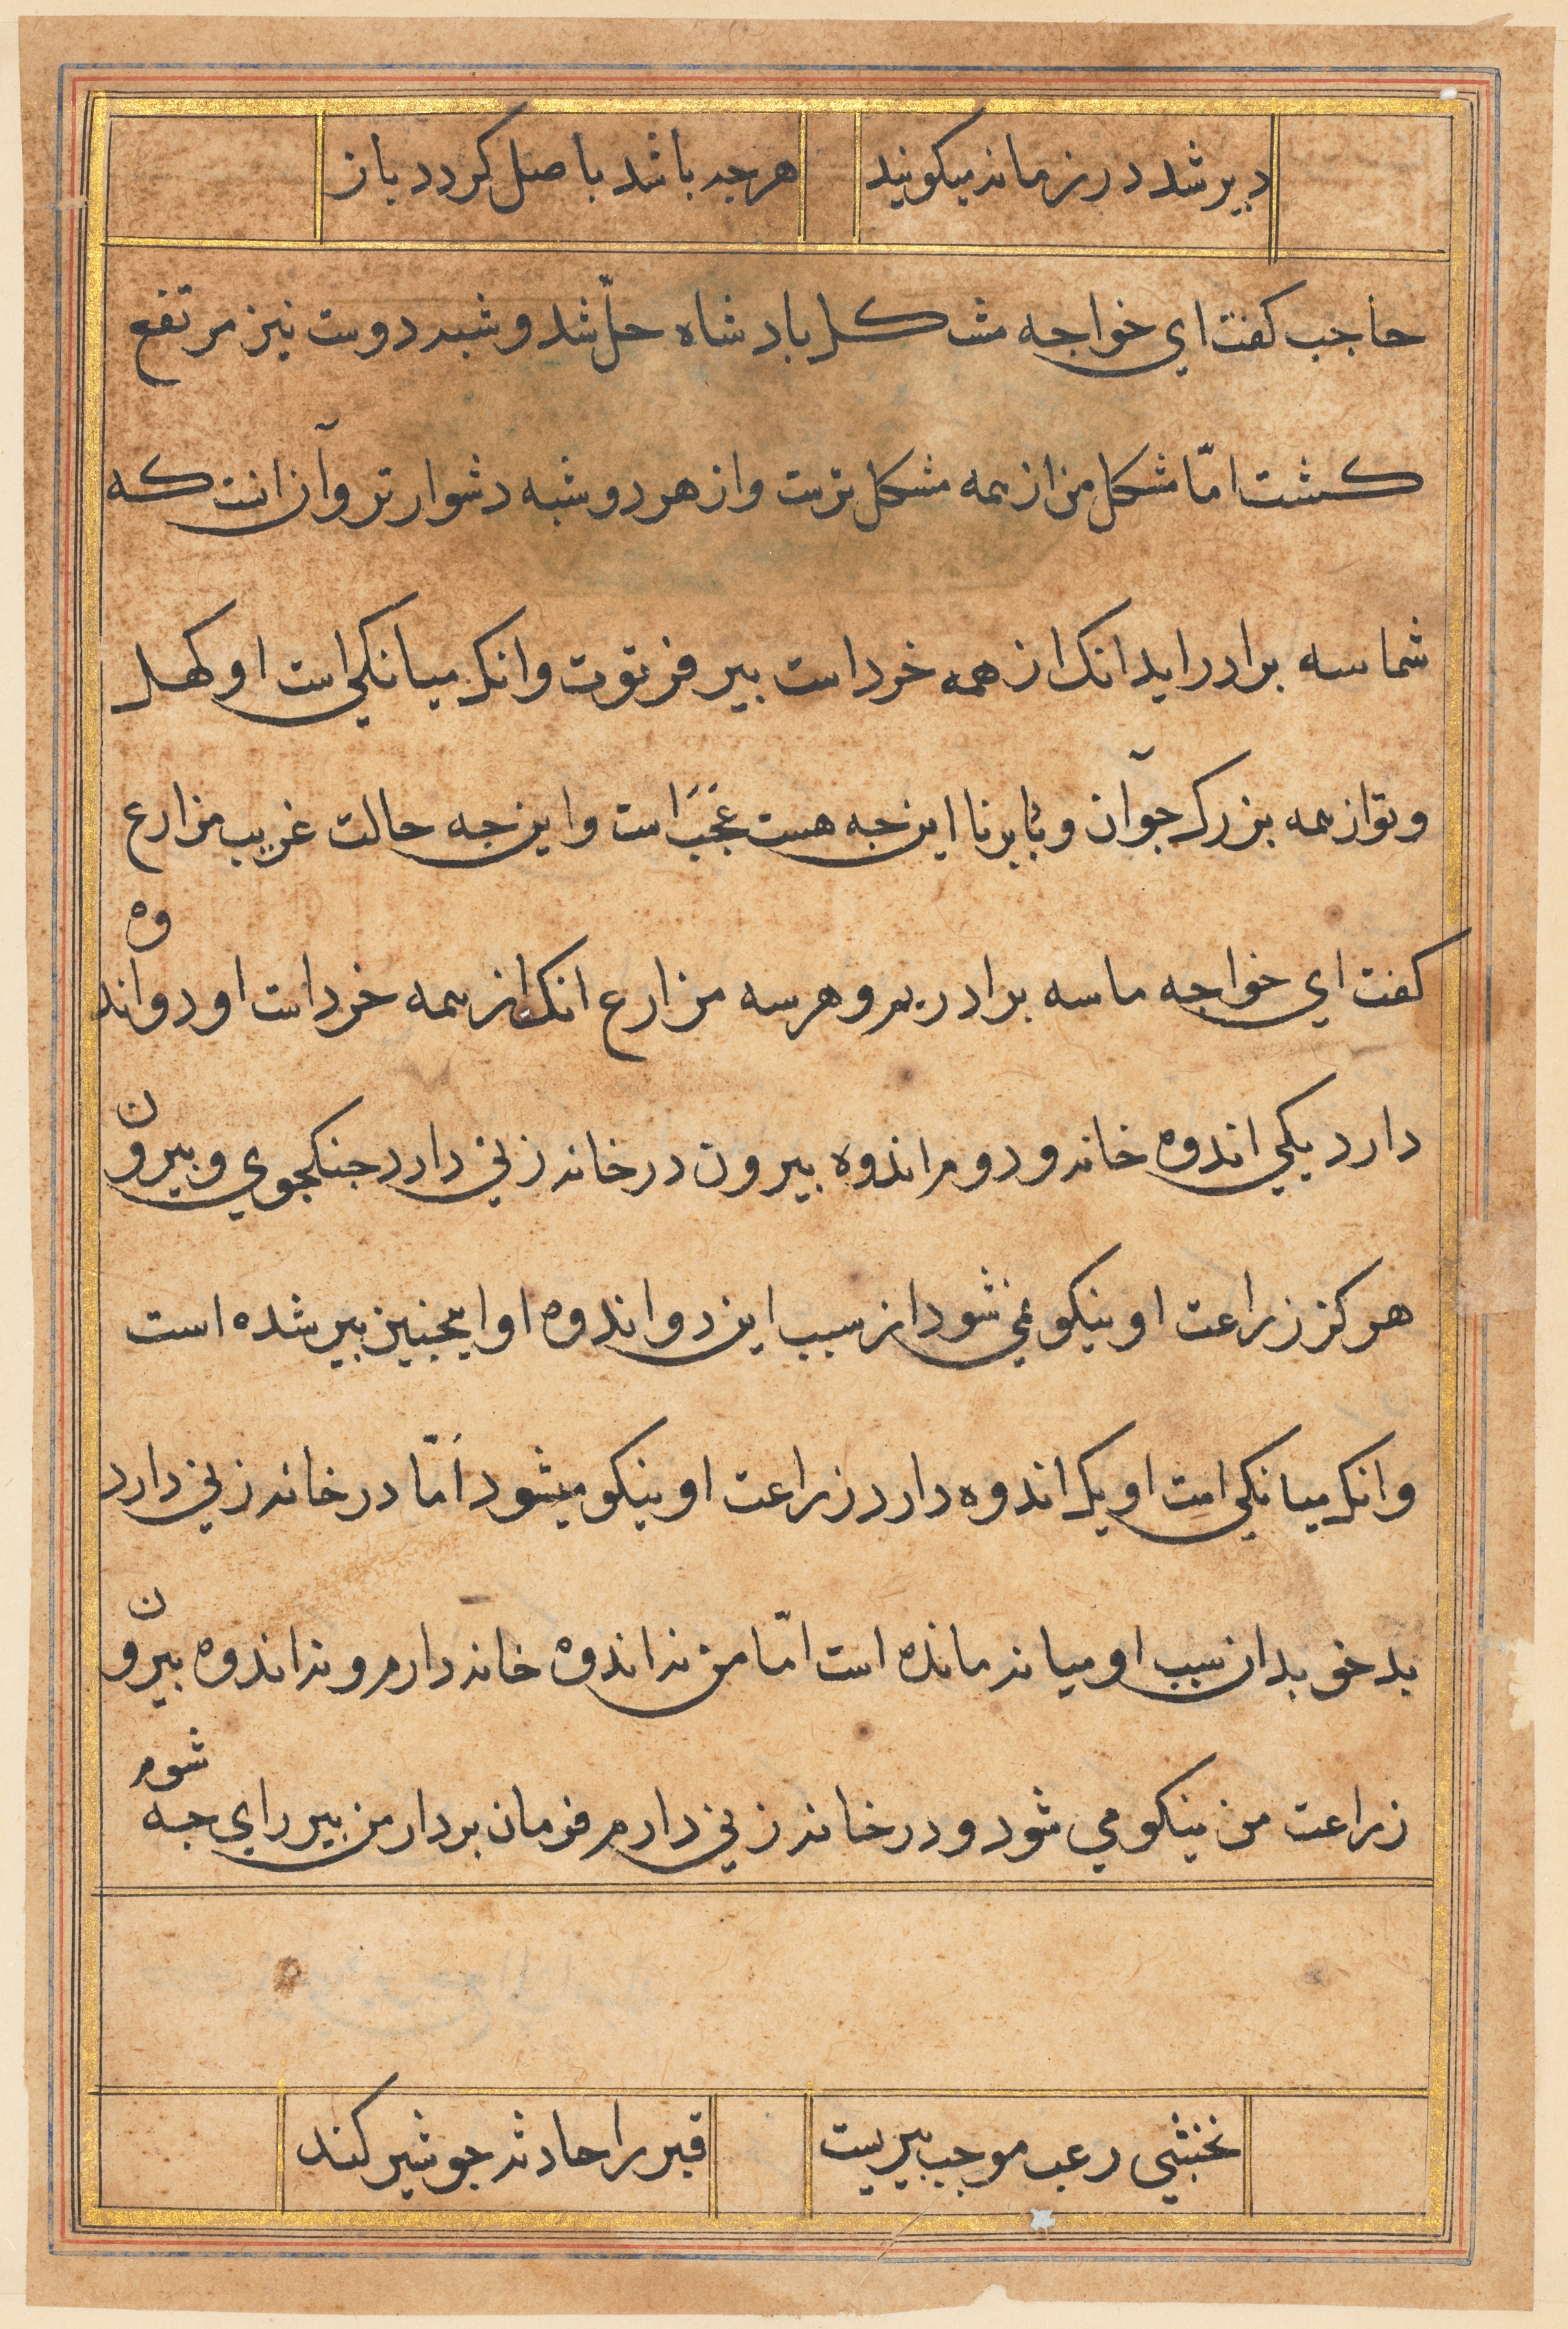 دیر شد در زمانه میکویند هرچه باشد باصل کردد باز
حاجب کفت ای خواجه مشکل بادشاه حلّ شد و شبه دوست نیز مرتفع
کشت امّا مشکل من از همه مشکل ترست و از هر دو شبه دشوارتر و آن انست که
شما سه برادراید انک از همه خرد است بیر فرتوت و انک میانکی است او کهل
و تو از همه بزرک جوآن و برنا این چه هست عَجَبَ است و این چه حالت غریب مزارع
کفت ای خواجه ما سه برادریم و هر سه مزارع انک از همه خرد است او دو اندوه
دارد یکی اندوه خانه و دوم اندوه بیرون در خانه زنی دارد جنکجوی و بیرون
هرکز زراعت او نیکو نمی شود از سبب این دو اندوه او اینچنین بیر شده است
و انک میانکی است او یک اندوه دارد زراعت او نیکو میشود اَمّا در خانه زنی دارد
بدخو بدان سبب او میانه مانده است امّا من نه اندوه خانه دارم و نه اندوه بیرون
زراعت من نیکو می شود و در خانه زنی دارم فرمان بردار من بیر رای چه شوم
نخشبی رعب موجب بیریست قیر را حادثه جو شیر کند